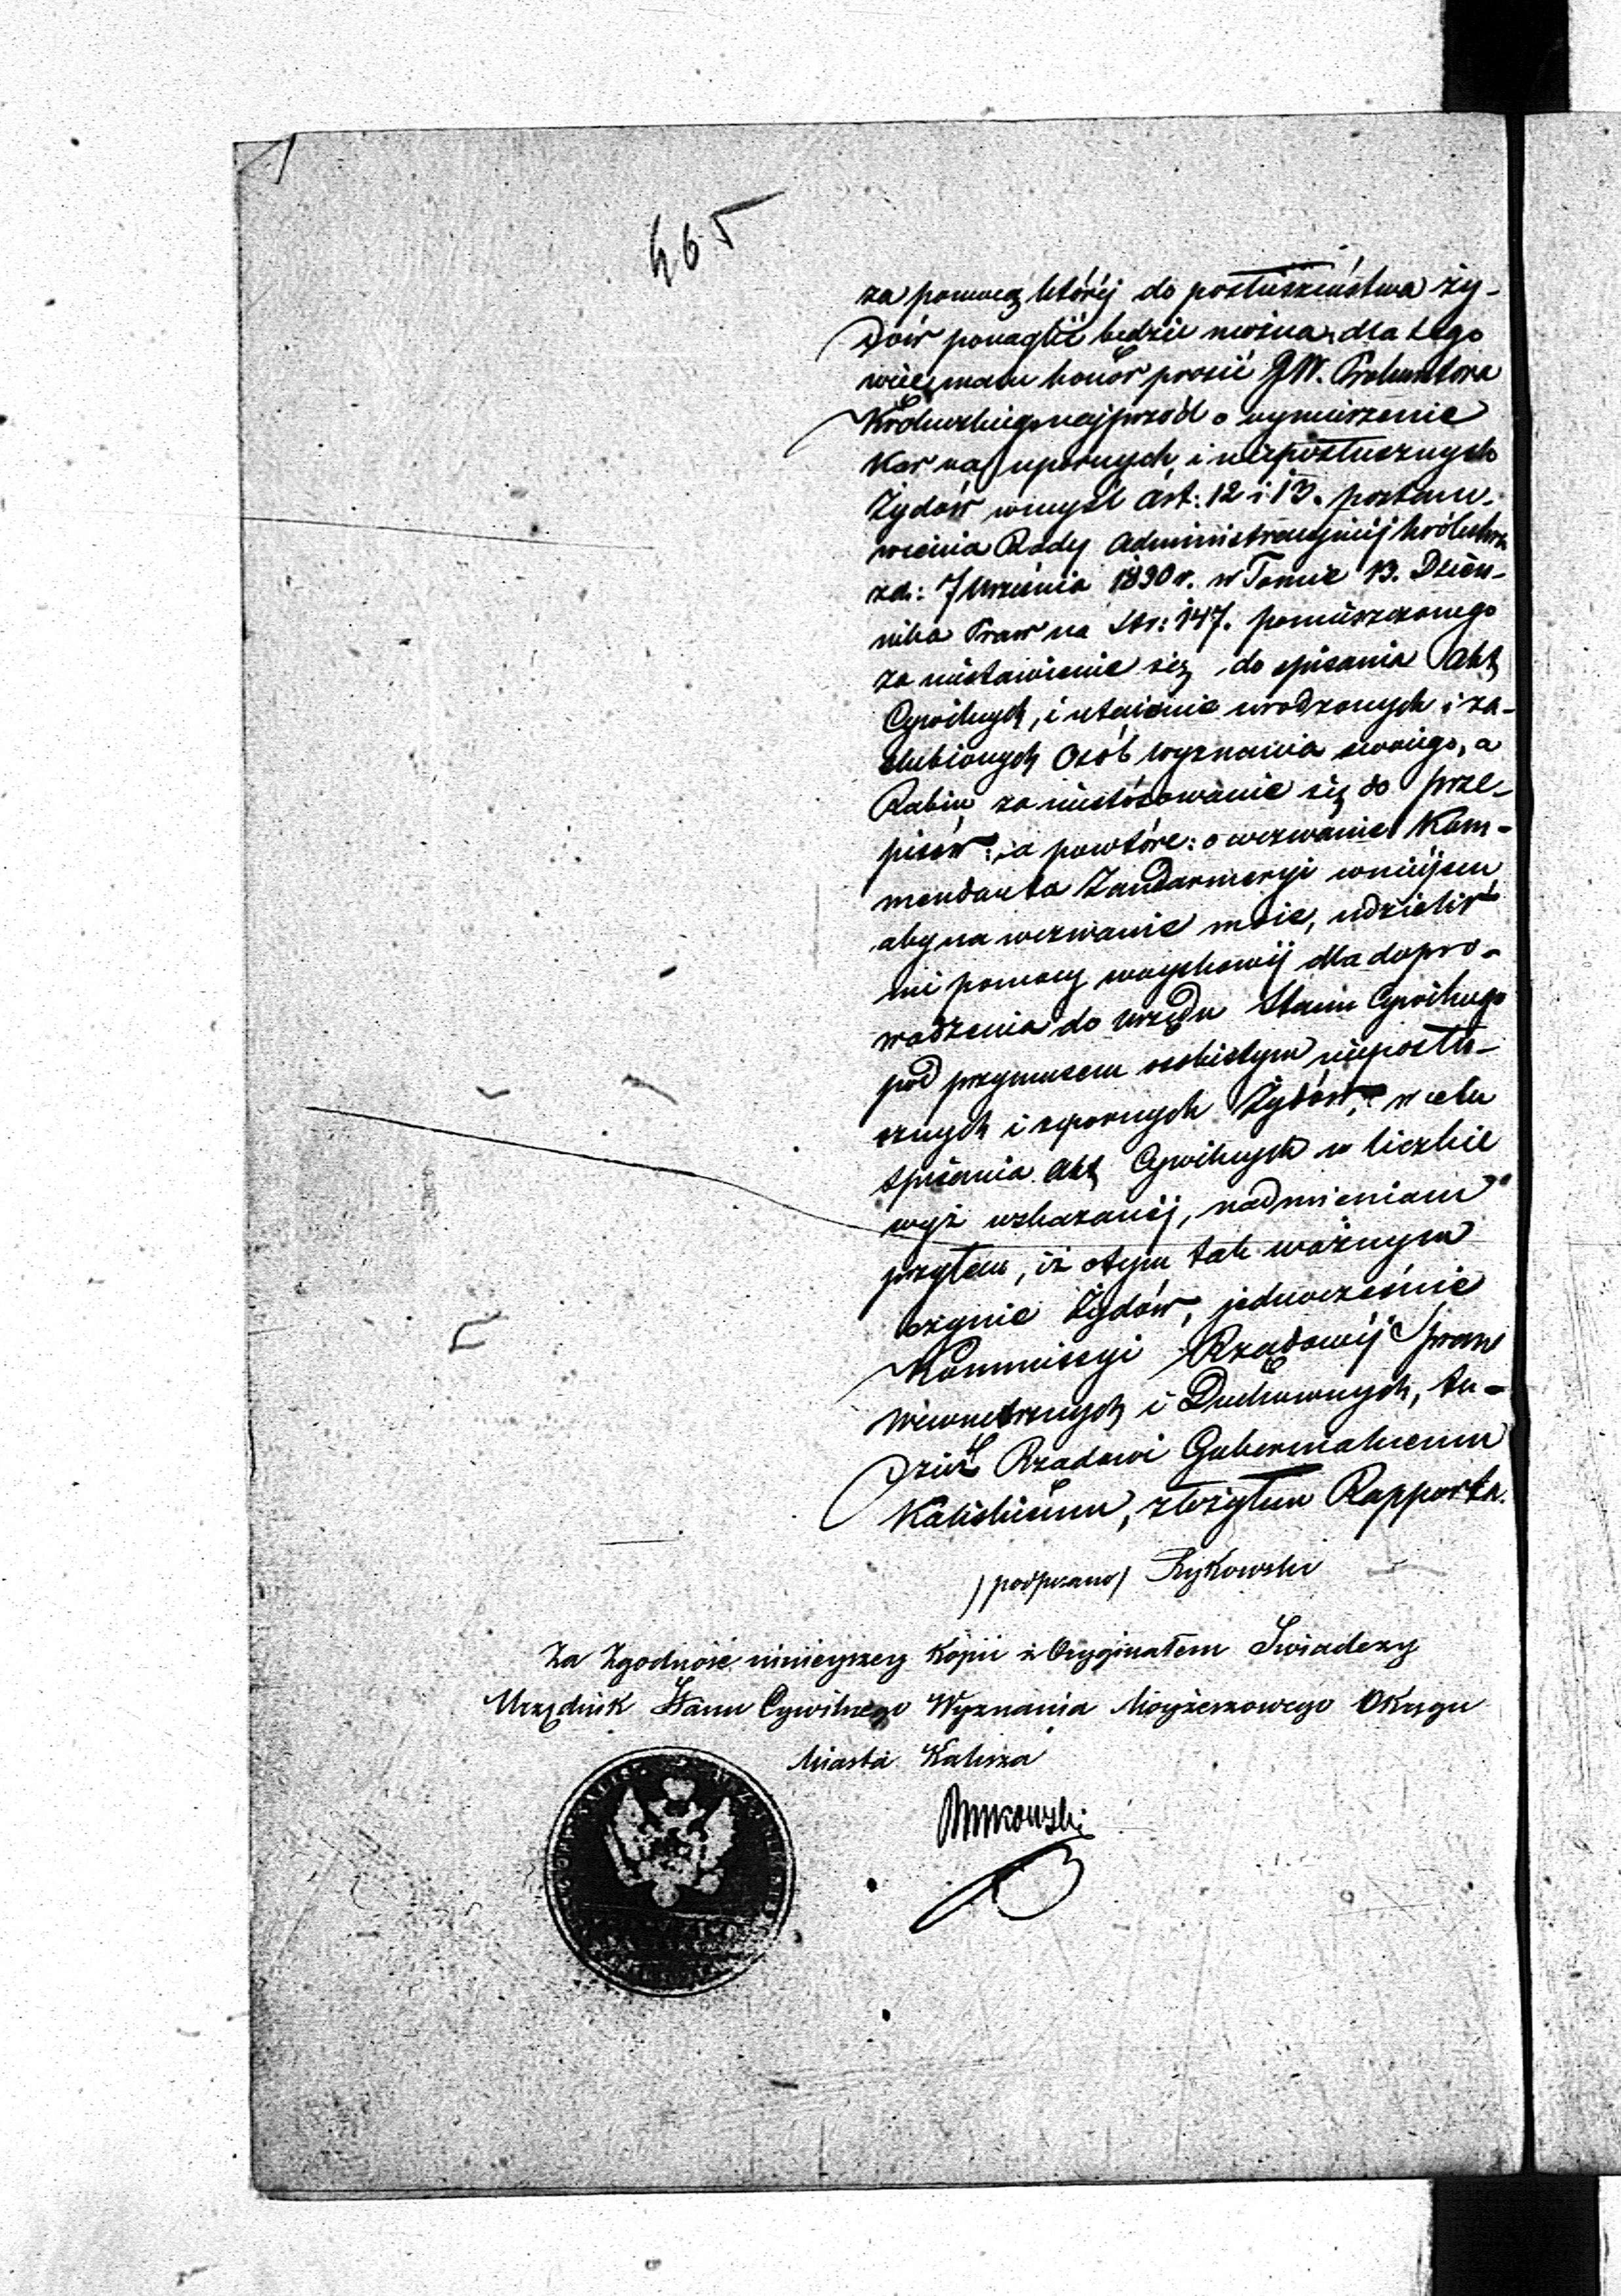 465
za pomocą której do posłuszeństwa ży-
dów ponaglić będzie można, dla tego
więc mam honor prosić JW. Prokuratora
Królewskiego najprzód o wymierzenie
Kar na upornych i nieposłusznych
Żydów wmyśl Art: 12 i 13. postano-
wienia Rady Administracyjnej Królestwa
zd: 7 Września 1830 r. w Tomie 13. Dzien-
nika Praw na Str: 147. pomieszczonego
za niestawienie się do spisania Akt
Cywilnych, i utajenie urodzonych i za-
ślubionych Osób wyznania swoiego, a
Rabin za niestósowanie się do prze-
pisów: a powtóre: o wezwanie Kom-
mendanta Żandarmeryi wmieyscu
aby na wezwanie moie, udzielił
mi pomocy woyskowéj dla dopro-
wadzenia do Urzędu Stanu Cywilnego
pod przymusem osobistym nieposłu-
sznych i upornych Żydów, w celu
spisania Akt Cywilnych w liczbie
wyż wskazanéj, nadmieniam
przytem, iż otym tak ważnym
czynie Żydów, jednocześnie
Kommissyi Rządowéj Spraw
Wewnętrznych i Duchownych, tu-
dzież Rządowi Gubernialnemu
Kaliskiemu, złożyłem Rapporta.
/podpisano/ Rykowski
Za Zgodność ninieyszey Kopii z Oryginałem Świadczy
Urzędnik Stanu Cywilnego Wyznania Moyżeszowego Okręgu
Miasta Kalisza